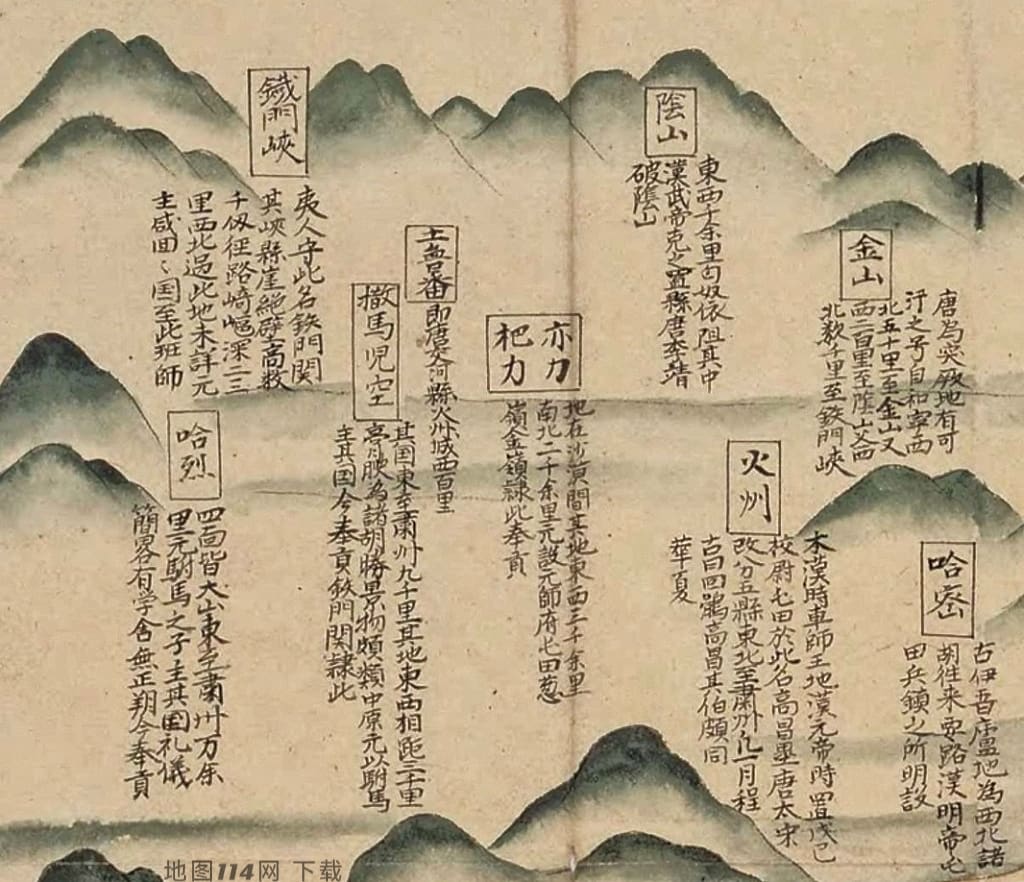 哈密
古伊吾廬地為西北諸
胡往来要路漢明帝屯
田兵鎮之所明設
金山
唐為突厥地有可
汗之号自和寧西
北五十里至金山又
西二百里至陰山又西
北数千里至鉄門峡
火州
本漢時車師王地漢元帝時置戊己
校尉屯田於此名高昌壘唐太宋
改分五縣東北至肅州九一月程
古曰回鶻高昌其伯頗同
華夏
陰山
東西千余里匈奴依阻其中
漢武帝克之置縣唐李靖
破陰山
亦力
把力
地在沙漠間其地東西三千余里
南北二千余里元設元師府屯田葱
嶺金嶺隷此奉貢
土魯番
即唐交河縣火州城西百里
撤馬児空
其国東至肅州九千里其地東西相距三千里
亭肦為諸胡勝景物頗類中原元以駙馬
主其国今奉貢鉄門関隷此
鐵門峽
夷人守此名鉄門関
其峽縣崖絶壁高数
千仭徑路崎嶇深二三
里西北過此地未詳元
主咸回〻国至此班師
哈烈
四面皆大山東至肅州万余
里元駙馬之子主其国礼儀
簡畧有学舎無正朔今奉貢
地图114网 下载